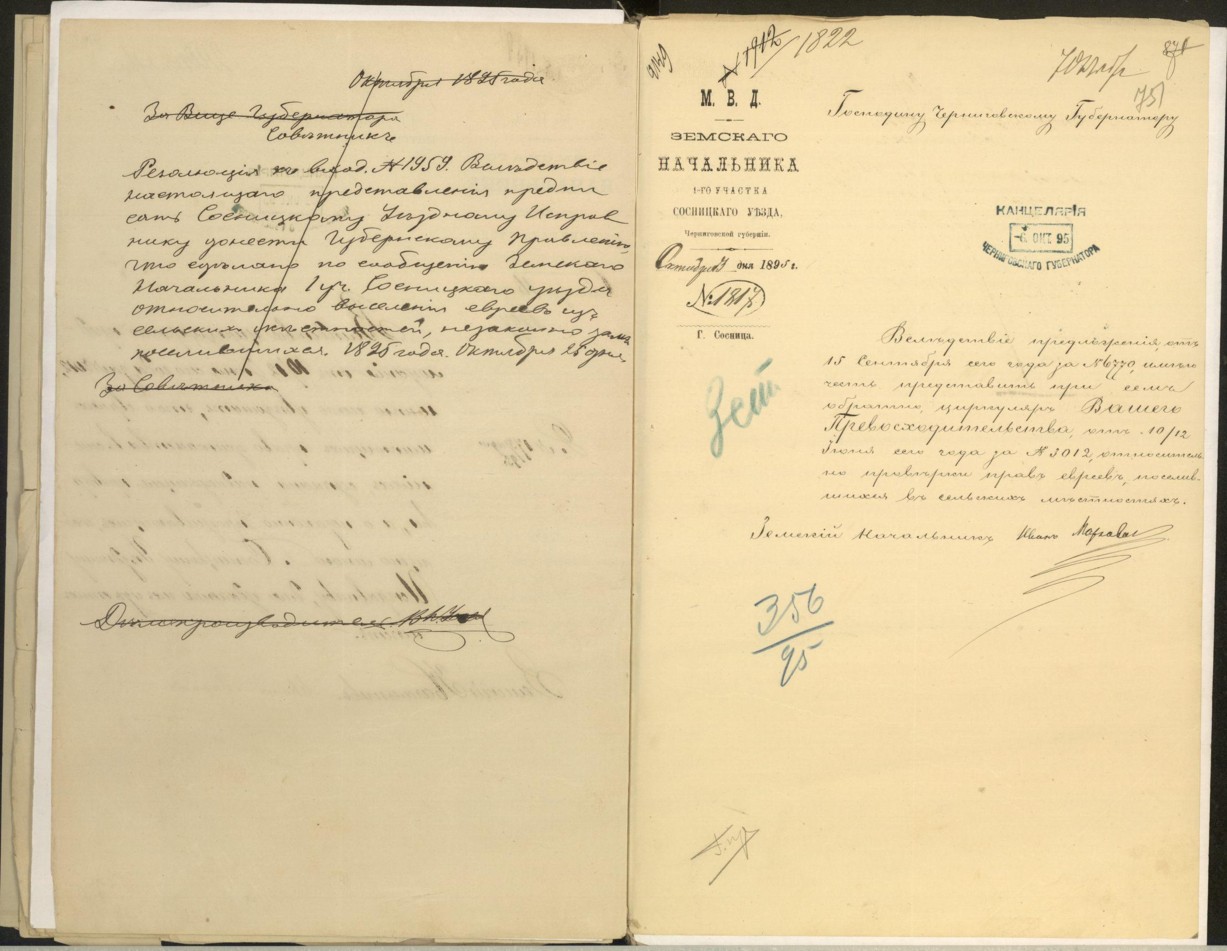 Октября 1895 года
За Вице Губернатора
Совѣтникъ
Резолюція къ вход. № 1959. Вслѣдствіе
настоящаго представленія предпи
сать Сосницкому Уѣздному Исправ
нику донести Губернскому Правленію,
что сдѣлано по сообщенію Земскаго
Начальника 1 уч. Сосницкаго уѣзда
относительно выселенія евреевъ изъ
сельскихъ мѣстностей, незаконно тамъ
поселившихся. 1895 года. Октября 25 дня.
За Совѣтника
Дѣлопроизводитель
9149
№ 1912/1822
7 Октябр
87
751
М. В. Д.
ЗЕМСКАГО
НАЧАЛЬНИКА
1-ГО УЧАСТКА
СОСНИЦКАГО УѢЗДА,
Черниговской губерніи.
Октября 4 дня 1895 г.
№ 1817
Г. Сосница.
Господину Черниговскому Губернатору
КАНЦЕЛЯРІЯ
-6. ОКТ 95
ЧЕРНИГОВСКАГО ГУБЕРНАТОРА
Вслѣдствіе предложенія, отъ
15 Сентября сего года за № 6770, имѣю
честь представить при семъ
обратно, циркуляръ Вашего
Превосходительства, отъ 10/12
Іюня сего года за № 3012, относитель
но провѣрки правъ евреевъ, поселив-
шихся въ сельскихъ мѣстностяхъ.
Земскій Начальникъ Иванъ
356
95